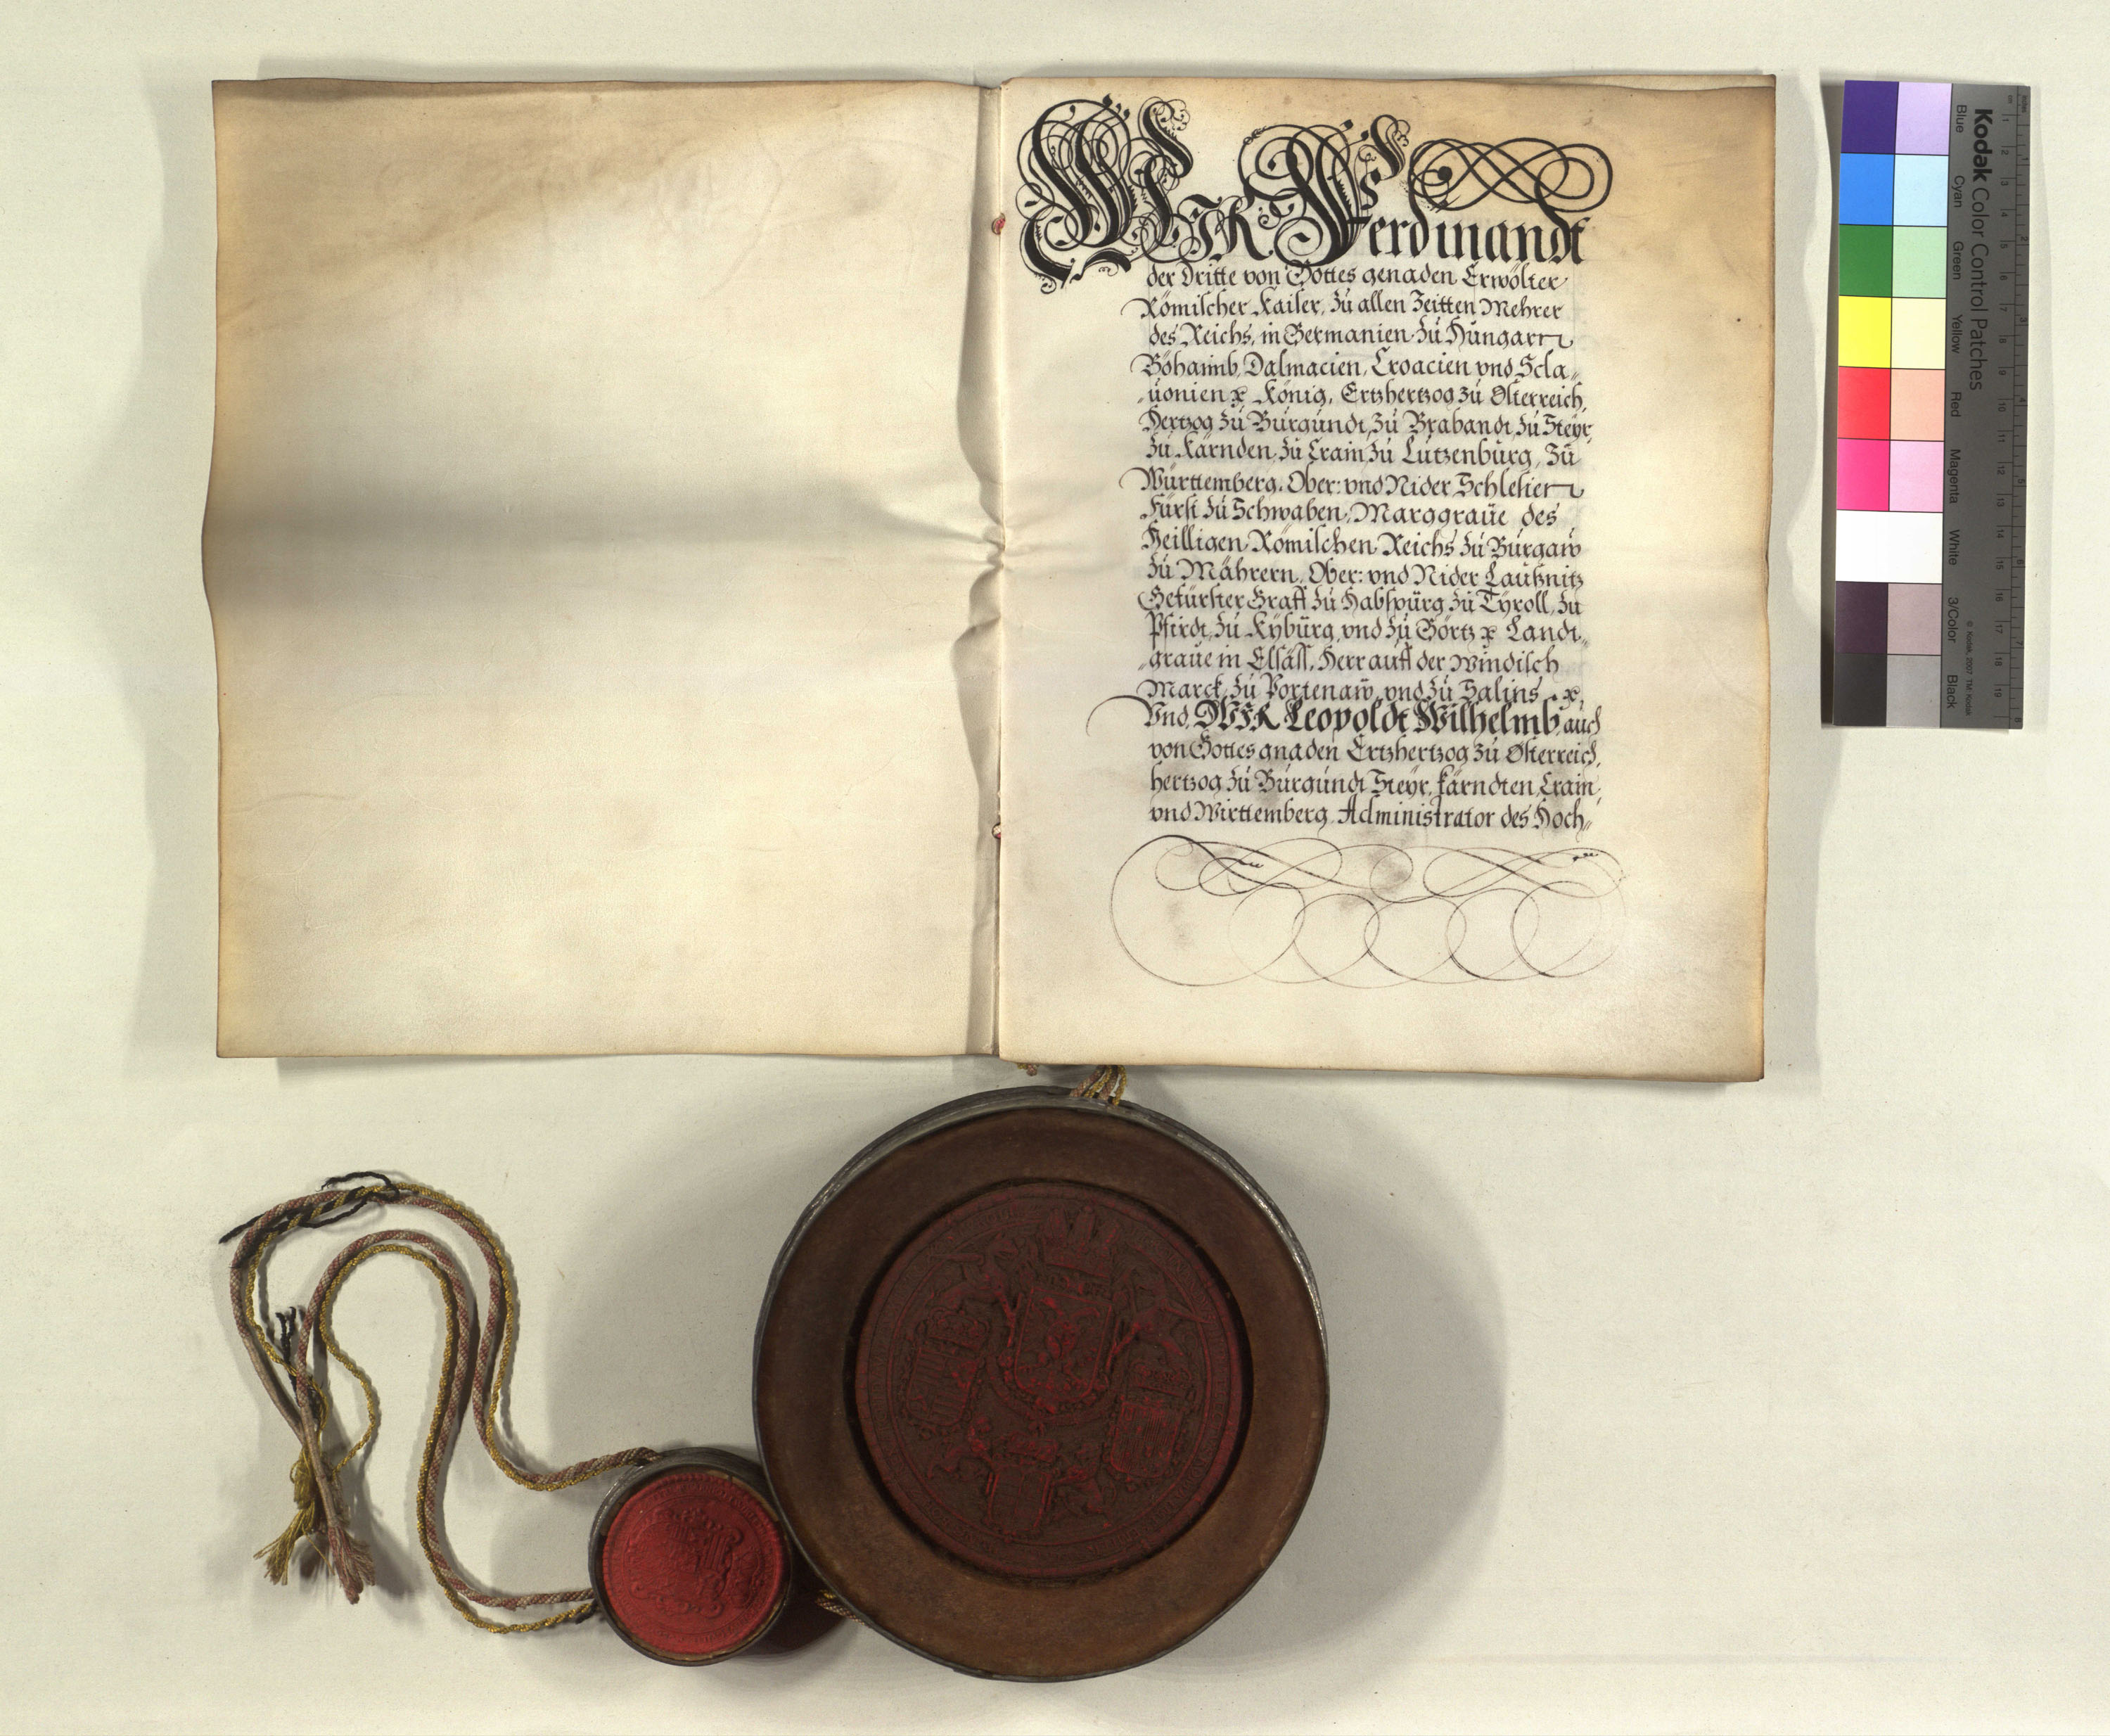 WIR Ferdinandt
der Dritte von Gottes genaden Erwölter
Römischer Kaiser, zu allen Zeitten Mehrer
des Reichs, in Germanien zu Hungarn
Böhaimb, Dalmacien, Croacien vnd Scla„
„uonien ꝛc König, Ertzhertzog zu Österreich,
Hertzog zu Burgundt, zu Brabandt, zu Steyr,
zu Kärnden, zu Crain, zu Lützenburg, zu
Württemberg, Ober: vnd Nider Schlesien
Fürst zu Schwaben, Marggraue des
Heilligen Römischen Reichs zu Burgaw
zu Mährern, Ober: vnd Nider Laußnitz
Gefürster Graff zu Habspurg zu Tyroll, zu
Pfirdt, zu Kyburg, vnd zu Görtz ꝛc Landt„
„graue in Elsäss, Herr auff der Windisch
Marck, zu Portenaw, vnd zu Salins ꝛc,
Vnd WIR Leopoldt Wilhelmb, auch
von Gottes gnaden Ertzhertzog zu Österreich,
hertzog zu Burgundt Steyr, kärndten, Crain,
vnd Wirttemberg, Administrator des Hoch„
Kodak Color Control Patches
Blue Cyan Green Yellow Red Magenta White 3/Color Black
© Kodak, 2007 TM: Kodak
cm 1 2 3 4 5 6 7 8 9 10 11 12 13 14 15 16 17 18 19
inches 1 2 3 4 5 6 7 8